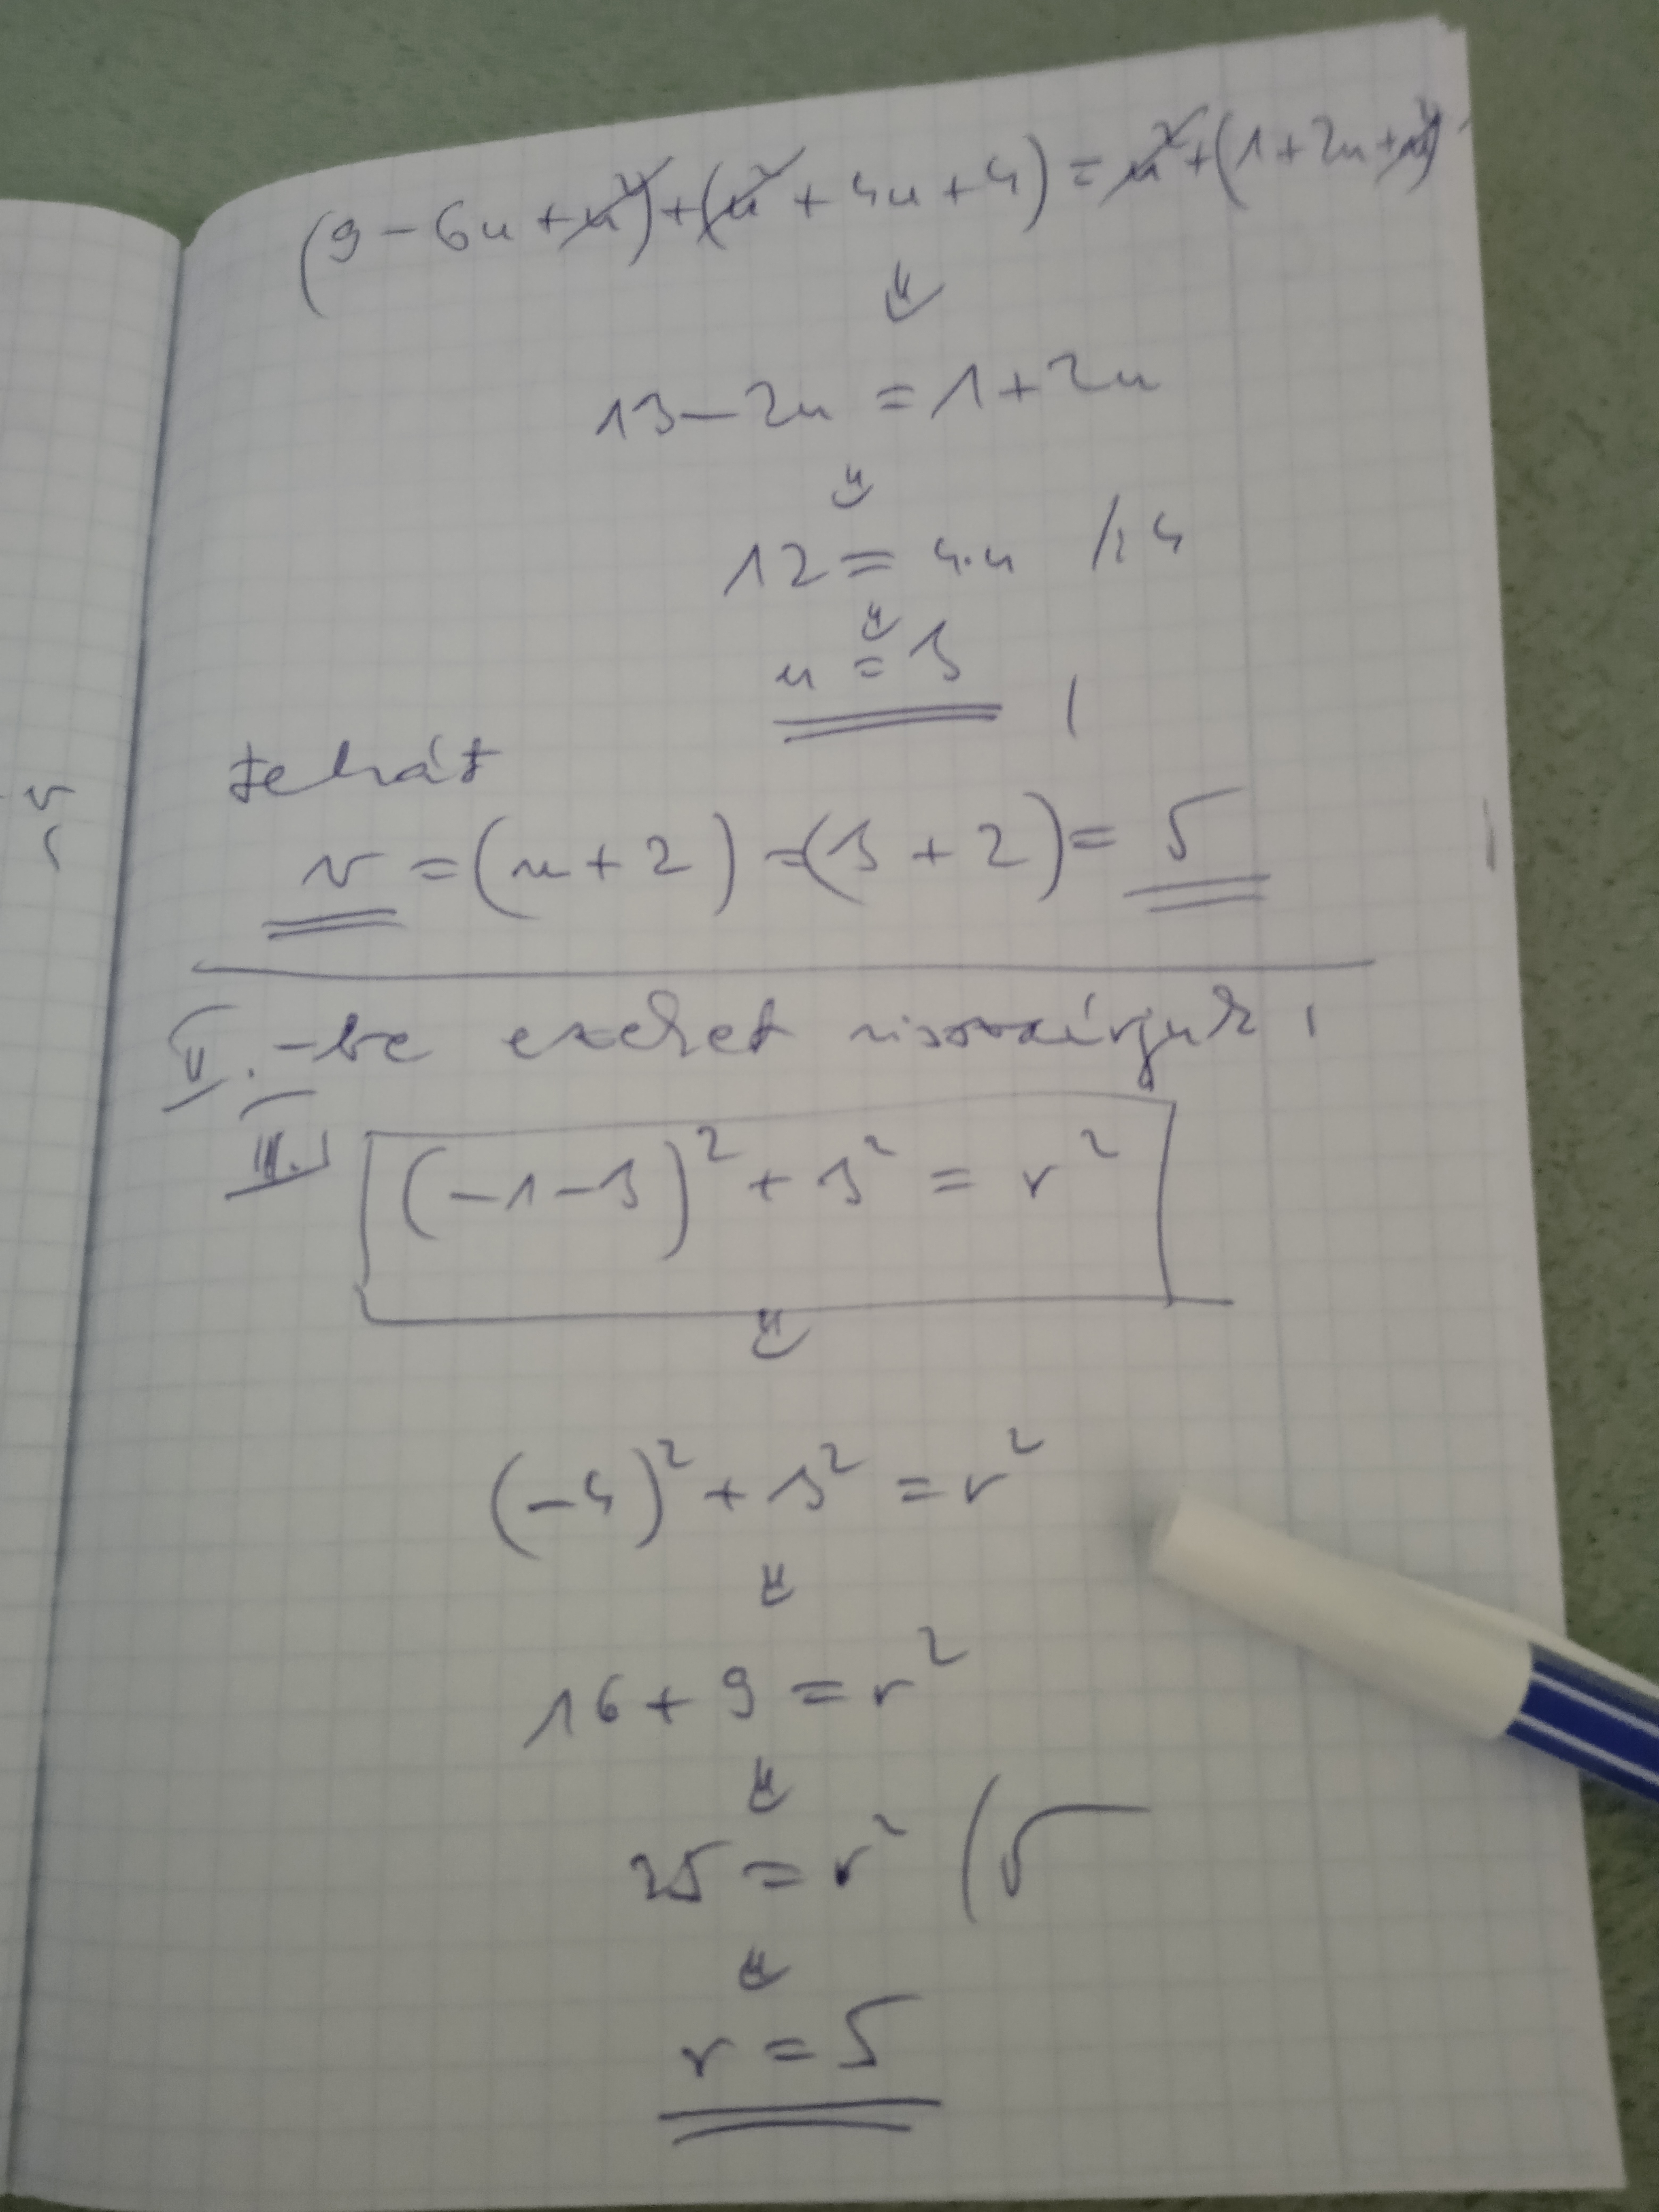 (9-6u+u²)+(u²+4u+4)=u²+(1+2u+u²)
⇓
13-2u=1+2u
⇓
12=4·u /:4
⇓
u=3
tehát
v=(u+2)=(3+2)=5
II.-be ezeket visszaírjuk
III. (-1-3)²+3²=r²
⇓
(-4)²+3²=r²
⇓
16+9=r²
⇓
25=r² (√
⇓
r=5